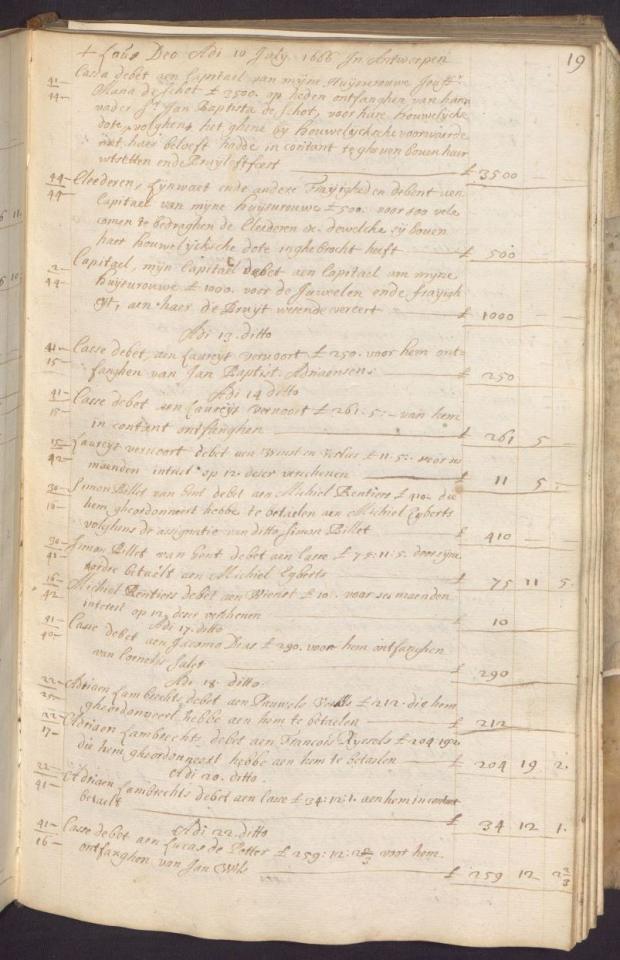 + Laus Deo Adi 10 July 1666 In Antwerpen 19
41 44 Cassa debet aen Capitael van mijne Huijsvrouwe Jouffr.
Maria de Schot £ 3500. op heden ontfanghen van haren
vader Sr. Jan Baptista de Schot, voor hare houwelijcke
dote, volghens het ghene bij houwelijcksche voorwaerde
met haer beloeft hadde in contant te gheven boven haer
uitsetten ende Bruyloftfeest £ 3500 —
44 44 Cleederen, Lijnwaet ende andere Frayigheden debent aen
Capitael van mijne huijsvrouwe £ 500. voor soo vele
comen te bedraghen de Cleederen &c. dewelcke sij boven
haer houwelijcksche dote inghebrocht heeft £ 500
2 44 Capitael, mijn Capitael debet aen Capitael van mijne
huijsvrouwe £ 1000. voor de Juweelen ende frayich
eyt, aen haer de Bruyt wesende vereert £ 1000
Adi 13. ditto
41 15 Casse debet, aen Laureys vervoort £ 250. voor hem ont-
fanghen van Jan Baptist Adriaensen £ 250
Adi 14 ditto
41 15 Casse debet aen Laureys vervoort £ 261. 5: — van hem
in contant ontfanghen £ 261 5 —
15 42 Laureys vervoort debet aen Winst en Verlies £ 11.5:. voor ses
maenden intrest op 12. deser verschenen £ 11 5 —
30 16 Simon Billet van Gent debet aen Michiel Rentiers £ 410. die
hem gheordonneert hebbe te betaelen aen Michiel Egberts
volghens de assignatie van ditto Simon Billet £ 410 —
30 41 Simon Billet van Gent debet aen Casse £ 75: 11: 5. door syne
ordre betaelt aen Michiel Egberts £ 75 11 5.
16 42 Michiel Rentiers debet aen Winst £ 10. voor ses maenden
interest op 12 deser verschenen £ 10
Adi 17. ditto
41 40 Casse debet aen Jacomo Dias £ 290. voor hem ontfanghen
van Cornelis Salet £ 290
Adi 18. ditto
22 25 Adriaen Lambrechts debet aen Pauwels £ 212. die hem
gheordonneert hebbe aen hem te betaelen £ 212
22 17 Adriaen Lambrechts debet aen Francois £ 204. 19 2.
die hem gheordonneert hebbe aen hem te betaelen £ 204 19 2.
Adi 20. ditto.
22 41 Adriaen Lambrechts debet aen Casse £ 34: 12: 1. aen hem in contant
betaelt £ 34 12 1.
Adi 22. ditto
41 16 Casse debet aen Lucas de Potter £ 259: 12: 2 2/3 voor hem
ontfanghen van Jan Wils £ 259 12 2 2/3